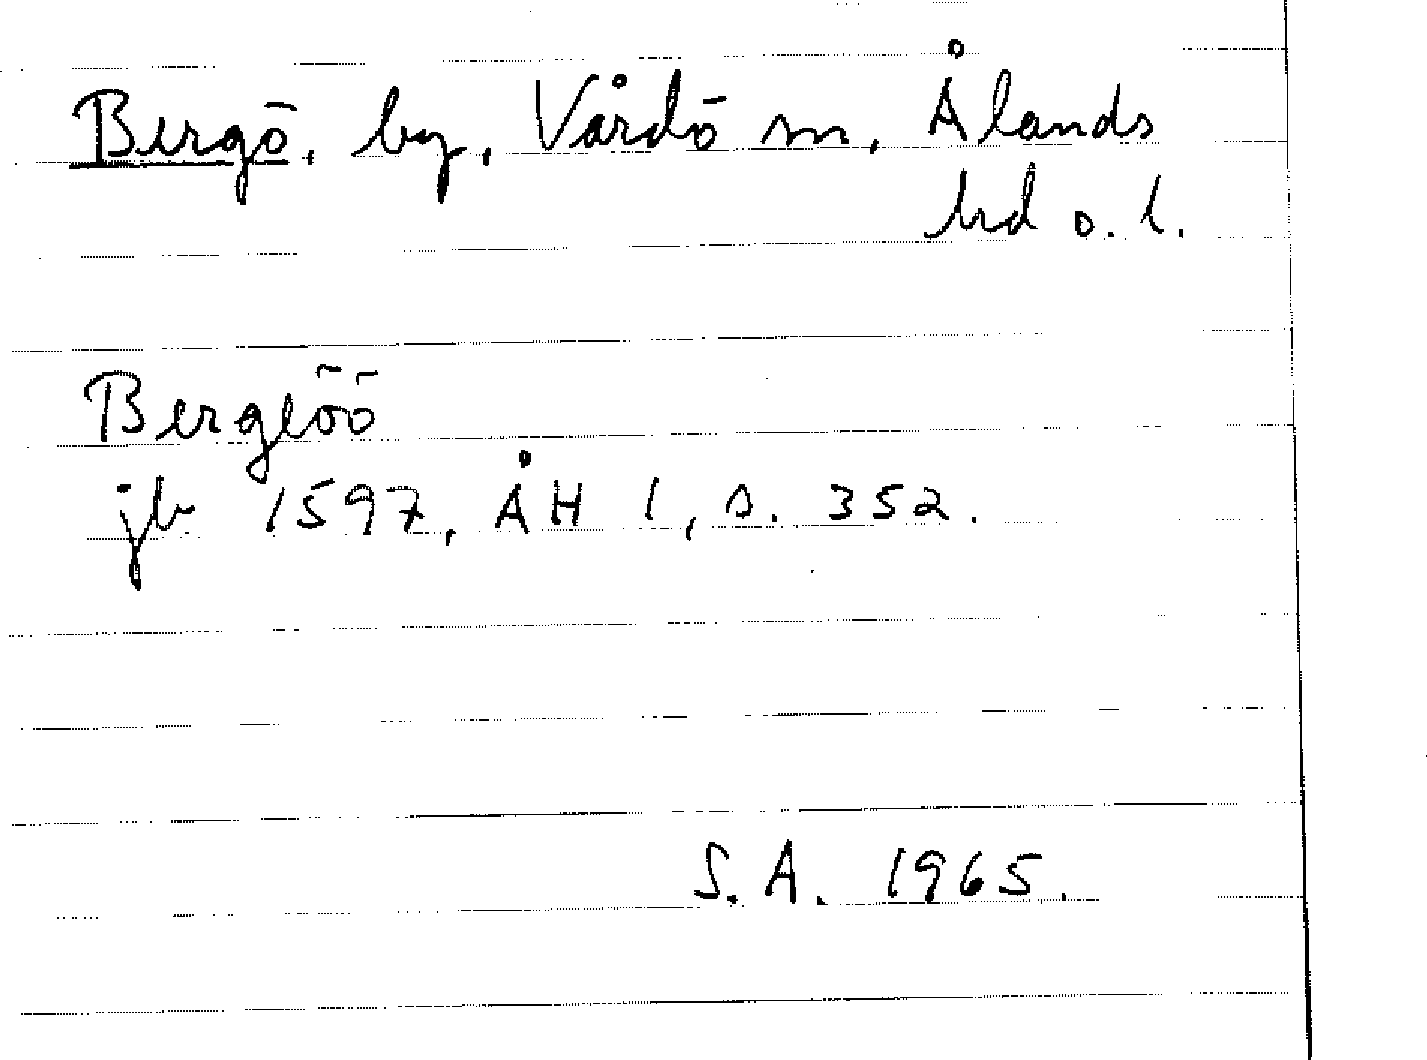 Bergö, by, Vårdö sn, Ålands
hd o. l.
Bergeöö
jb 1597, ÅH 1, s. 352.
S.A. 1965.